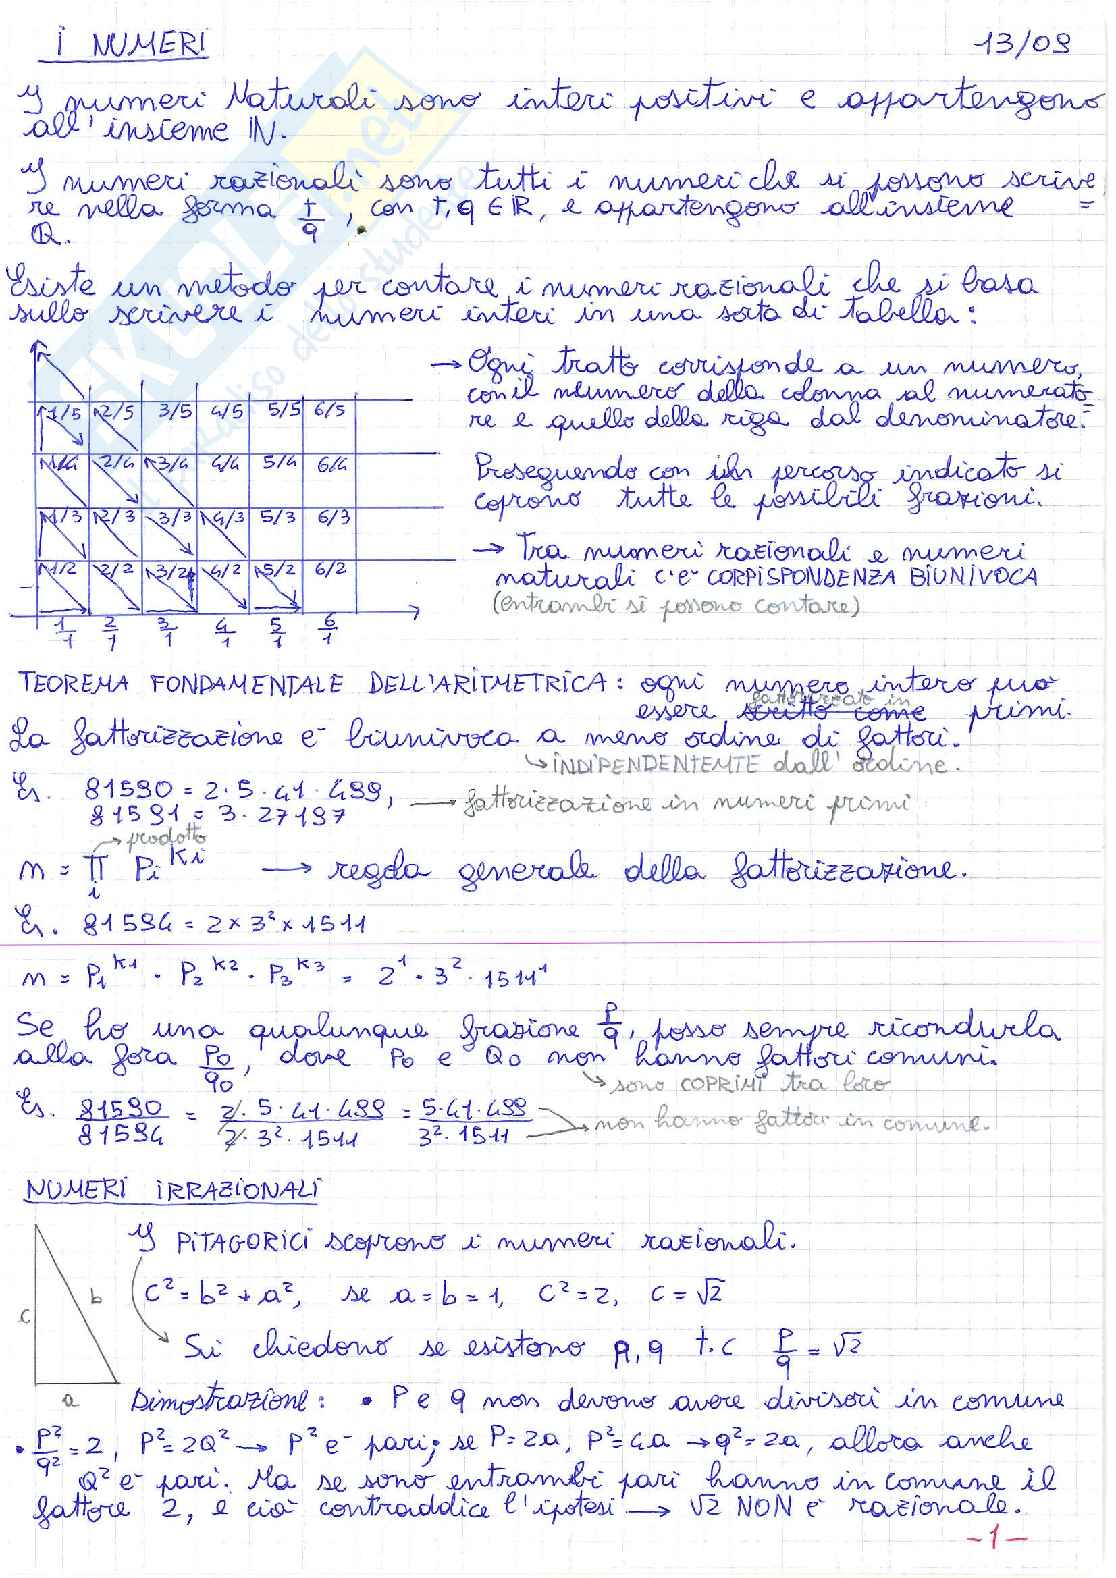 I NUMERI 13/09
I numeri Naturali sono interi positivi e appartengono
all'insieme ℕ.
I numeri razionali sono tutti i numeri che si possono scrive
re nella forma t/q, con t, q ∈ ℝ, e appartengono all'insieme =
ℚ.
Esiste un metodo per contare i numeri razionali che si basa
sullo scrivere i numeri interi in una sorta di tabella:
1/5 2/5 3/5 4/5 5/5 6/5
1/4 2/4 3/4 4/4 5/4 6/4
1/3 2/3 3/3 4/3 5/3 6/3
1/2 2/2 3/2 4/2 5/2 6/2
1/1 2/1 3/1 4/1 5/1 6/1
→ Ogni tratto corrisponde a un numero,
con il numero della colonna al numerato=
re e quello della riga dal denominatore.
Proseguendo con il percorso indicato si
coprono tutte le possibili frazioni.
→ Tra numeri razionali e numeri
naturali c'è CORPISPONDENZA BIUNIVOCA
(entrambi si possono contare)
TEOREMA FONDAMENTALE DELL'ARITMETRICA: ogni numero intero può
fattorizzato in
essere scritto come primi.
La fattorizzazione è biunivoca a meno ordine di fattori.
↳ INDIPENDENTEMTE dall'ordine.
Es. 81590 = 2·5·41·499, → fattorizzazione in numeri primi
81591 = 3·27197
→ prodotto
n = ∏ᵢ Pᵢ^Ki → regola generale della fattorizzazione.
Es. 81594 = 2×3²×1511
n = P₁^K1 · P₂^K2 · P₃^K3 = 2¹·3²·1511¹
Se ho una qualunque frazione P/q, posso sempre ricondurla
alla fora P₀/q₀, dove P₀ e Q₀ non hanno fattori comuni.
↳ sono COPRIMI tra loro
Es. 81590/81594 = 2·5·41·499/2·3²·1511 = 5·41·499/3²·1511 → non hanno fattori in comune.
NUMERI IRRAZIONALI
I PITAGORICI scoprono i numeri razionali.
c b a
C² = b² + a², se a = b = 1, C² = 2, C = √2
Si chiedono se esistono p, q t.c P/q = √2
Dimostrazione: • P e q non devono avere divisori in comune
• P²/q² = 2, P² = 2Q² → P² è pari; se P = 2a, P² = 4a → q² = 2a, allora anche
Q² è pari. Ma se sono entrambi pari hanno in comune il
fattore 2, e ciò contraddice l'ipotesi → √2 NON è razionale.
-1-
SKUOLA.net
il paradiso dello studente